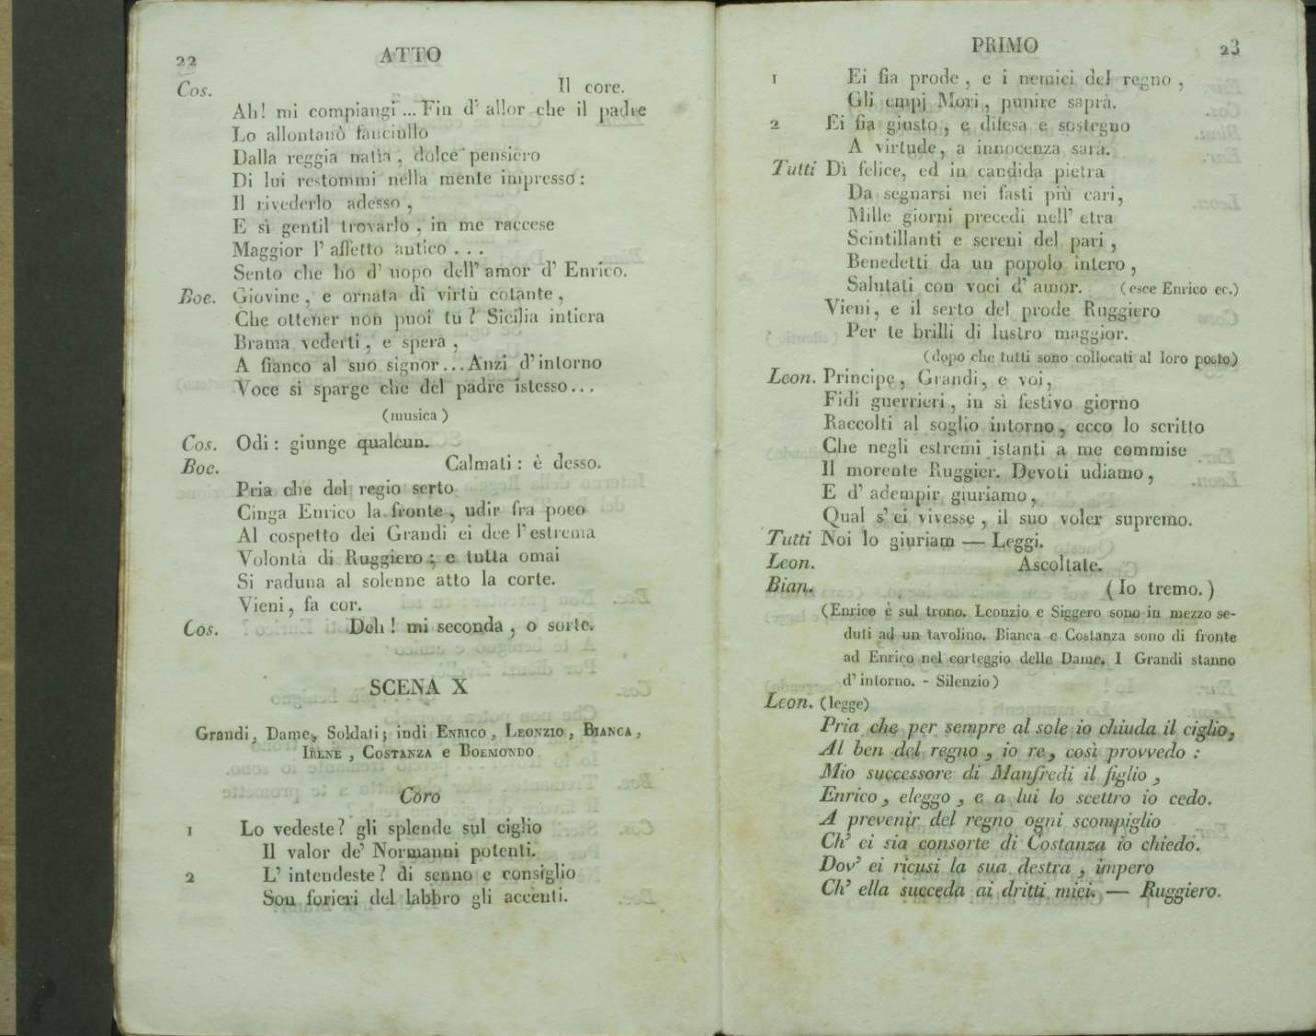 22 ATTO
Cos. Il core.
Ah! mi compiangi ... Fin d' allor che il padre
Lo allontanò fanciullo
Dalla reggia natìa, dolce pensiero
Di lui restommi nella mente impresso:
Il rivederlo adesso,
E sì gentil trovarlo, in me raccese
Maggior l' affetto antico . . .
Sento che ho d' uopo dell' amor d' Enrico.
Boe. Giovine, e ornata di virtù cotante,
Che ottener non puoi tu? Sicilia intiera
Brama vederti, e spera,
A fianco al suo signor ... Anzi d' intorno
Voce si sparge che del padre istesso...
(musica)
Cos. Odi: giunge qualcun.
Boe. Calmati: è desso.
Pria che del regio serto
Cinga Enrico la fronte, udir fra poco
Al cospetto dei Grandi ei dee l' estrema
Volontà di Ruggiero; e tutta omai
Si raduna al solenne atto la corte.
Vieni, fa cor.
Cos. Deh! mi seconda, o sorte.
SCENA X
Grandi, Dame, Soldati; indi ENRICO, LEONZIO, BIANCA,
IRENE, COSTANZA e BOEMONDO
Coro
1 Lo vedeste? gli splende sul ciglio
Il valor de' Normanni potenti.
2 L' intendeste? di senno e consiglio
Son forieri del labbro gli accenti.
PRIMO 23
1 Ei fia prode, e i nemici del regno,
Gli empj Mori, punire saprà.
2 Ei fia giusto, e difesa e sostegno
A virtude, a innocenza sarà.
Tutti Dì felice, ed in candida pietra
Da segnarsi nei fasti più cari,
Mille giorni precedi nell' etra
Scintillanti e sereni del pari,
Benedetti da un popolo intero,
Salutati con voci d' amor. (esce Enrico ec.)
Vieni, e il serto del prode Ruggiero
Per te brilli di lustro maggior.
(dopo che tutti sono collocati al loro posto)
Leon. Principe, Grandi, e voi,
Fidi guerrieri, in sì festivo giorno
Raccolti al soglio intorno, ecco lo scritto
Che negli estremi istanti a me commise
Il morente Ruggier. Devoti udiamo,
E d' adempir giuriamo,
Qual s' ei vivesse, il suo voler supremo.
Tutti Noi lo giuriam — Leggi.
Leon. Ascoltate.
Bian. (Io tremo.)
(Enrico è sul trono. Leonzio e Siggero sono in mezzo se-
duti ad un tavolino. Bianca e Costanza sono di fronte
ad Enrico nel corteggio delle Dame. I Grandi stanno
d' intorno. - Silenzio)
Leon. (legge)
Pria che per sempre al sole io chiuda il ciglio,
Al ben del regno, io re, così provvedo:
Mio successore di Manfredi il figlio,
Enrico, eleggo, e a lui lo scettro io cedo.
A prevenir del regno ogni scompiglio
Ch' ei sia consorte di Costanza io chiedo.
Dov' ei ricusi la sua destra, impero
Ch' ella succeda ai dritti miei. — Ruggiero.